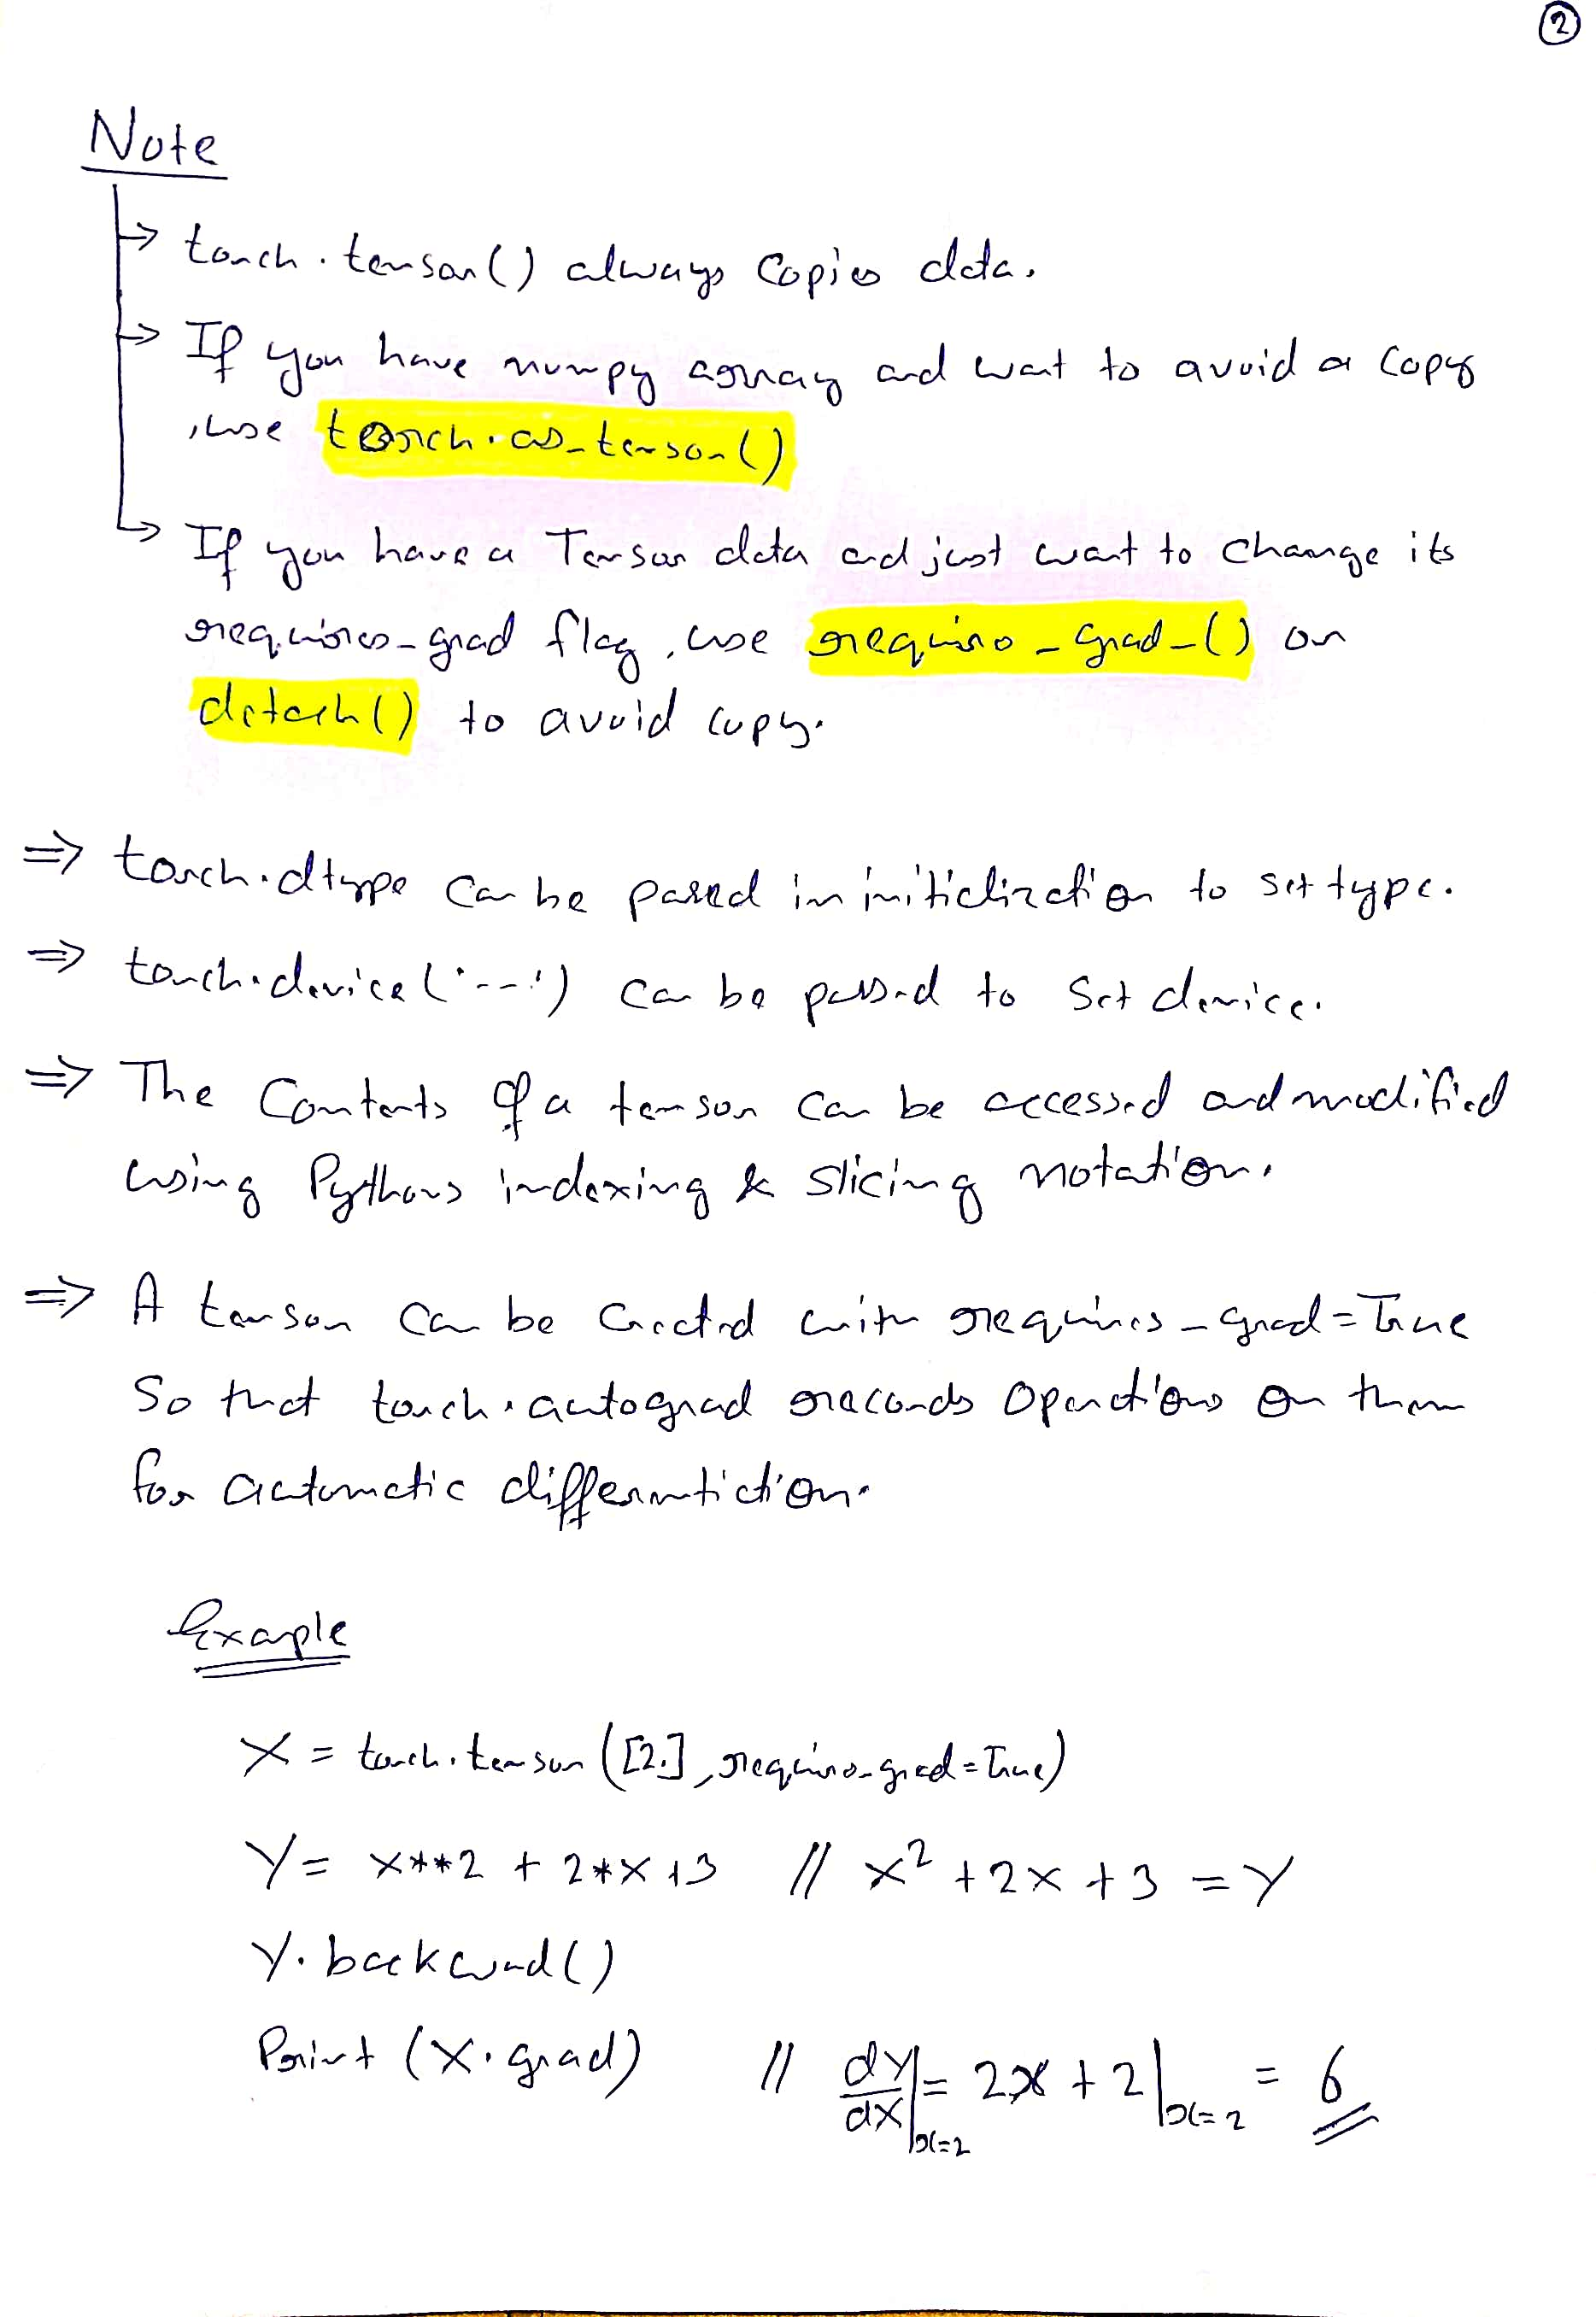 2
Note
torch.tensor() always copies data.
If you have numpy array and want to avoid a copy
, use torch.as_tensor()
If you have a Tensor data and just want to change its
requires_grad flag, use requires_grad_() or
detach() to avoid copy.
⇒ torch.dtype can be passed in initialization to set type.
⇒ torch.device('---') can be passed to set device.
⇒ The Contents of a tensor can be accessed and modified
using Pythons indexing & slicing notation.
⇒ A tensor can be created with requires_grad=True
So that torch.autograd records operations on them
for automatic differentiation.
Example
X = torch.tensor([2.], requires_grad=True)
Y = X**2 + 2*X+3 // x² + 2x + 3 = Y
Y.backward()
Print (X.grad) // dY/dX|x=2 = 2x + 2|x=2 = 6